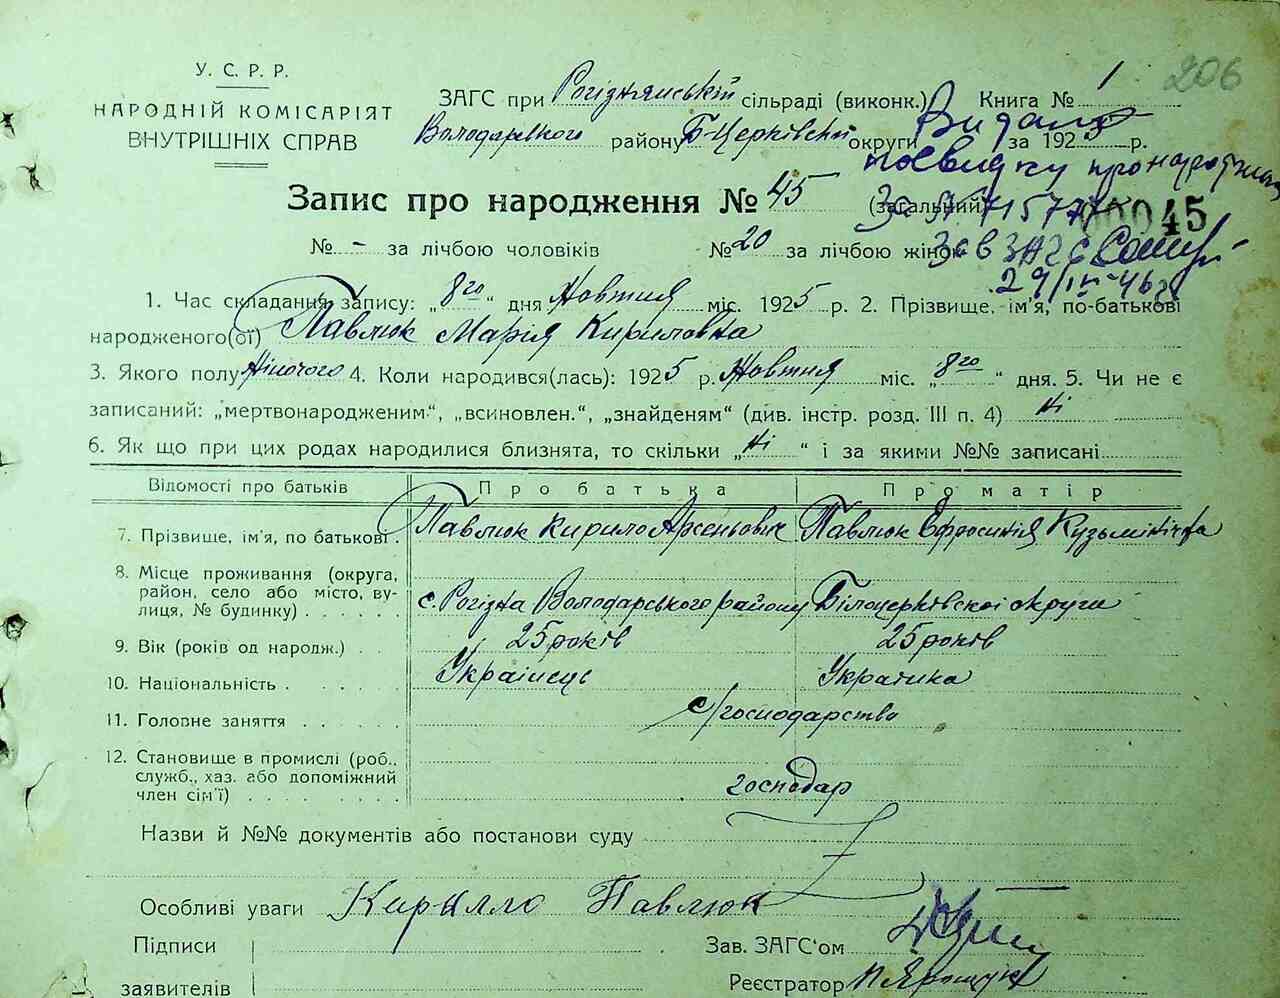 206
У. С. Р. Р.
НАРОДНІЙ КОМІСАРІЯТ
ВНУТРІШНІХ СПРАВ
ЗАГС при Рогізнянській сільраді (виконк.) Книга № 1
Володарського району Б-Церківської округи за 1925 р.
Видано
посвидку про народження
Запис про народження № 45 (загальний) 00045
№ - за лічбою чоловіків № 20 за лічбою жінок
29/IV-46 р
1. Час складання запису: „8го“ дня Жовтня міс. 1925 р. 2. Прізвище, ім'я, по-батькові
народженого(ої) Павлюк Марія Кириловна
3. Якого полу Жіночого 4. Коли народився(лась): 1925 р. Жовтня міс. „8го“ дня. 5. Чи не є
записаний: „мертвонародженим“, „всиновлен.“, „знайденям“ (див. інстр. розд. III п. 4) Ні
6. Як що при цих родах народилися близнята, то скільки „Ні“ і за якими №№ записані
Відомості про батьків Про батька Про матір
7. Прізвище, ім'я, по батькові Павлюк Кирило Арсеньович Павлюк Ефросинія Кузьмінічна
8. Місце проживання (округа,
район, село або місто, ву-
лиця, № будинку) с. Рогізна Володарського району Білоцерківської округи
9. Вік (років од народж.) 25 років 25 років
10. Національність Українець Українка
11. Головне заняття с/господарство
12. Становище в промислі (роб.,
служб., хаз. або допоміжний
член сім'ї) господар
Назви й №№ документів або постанови суду
Особливі уваги Кирилло Павлюк
Підписи Зав. ЗАГС'ом
заявителів Реєстратор